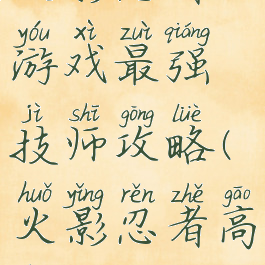 yóu xì zuì qiáng
游戏最强
jì shī gōng lüè
技师攻略(
huǒ yǐng rěn zhě gāo
火影忍者高